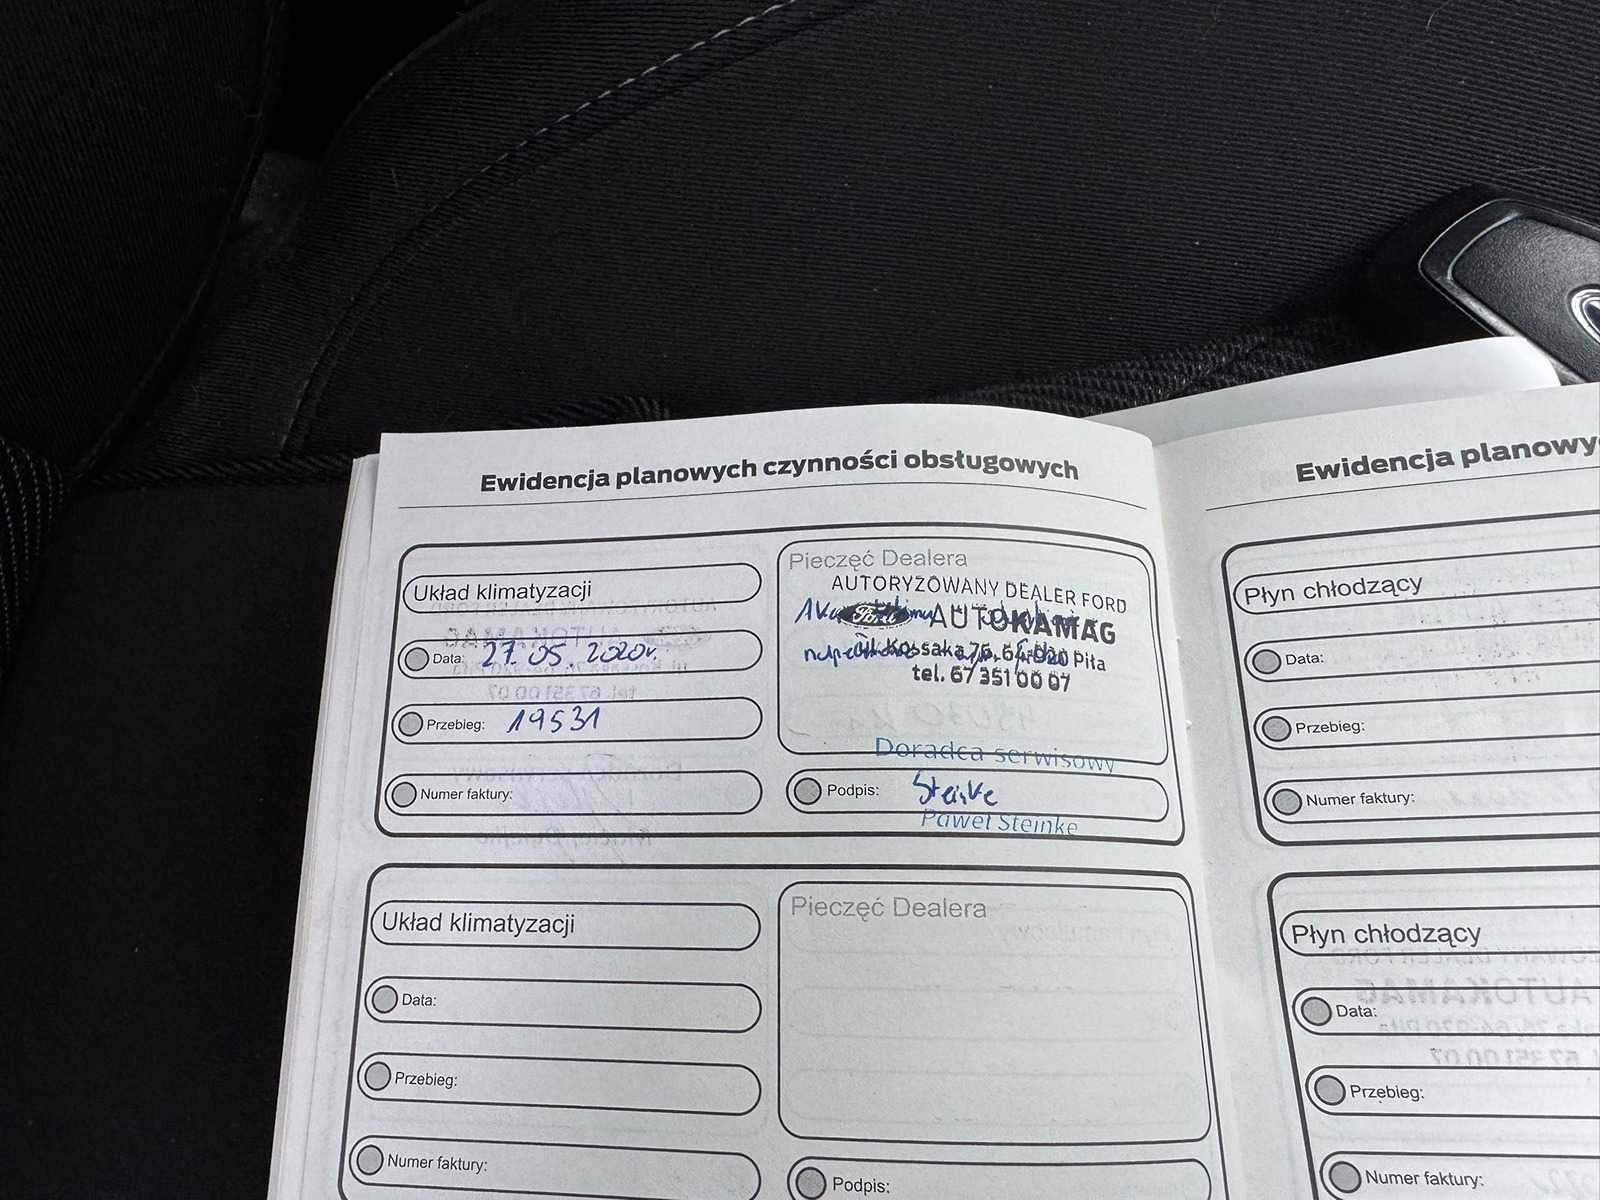 Ewidencja planowych czynności obsługowych
Układ klimatyzacji
Data: 27.05.2020r.
Przebieg: 19531
Numer faktury:
Pieczęć Dealera
AUTORYZOWANY DEALER FORD
Ford AUTOKAMAG
Ul. Kossaka 75, 64-920 Piła
tel. 67 351 00 07
Doradca serwisowy
Podpis: Steinke
Paweł Steinke
Układ klimatyzacji
Data:
Przebieg:
Numer faktury:
Pieczęć Dealera
Podpis:
Ewidencja planowy
Płyn chłodzący
Data:
Przebieg:
Numer faktury:
Płyn chłodzący
Data:
Przebieg:
Numer faktury: